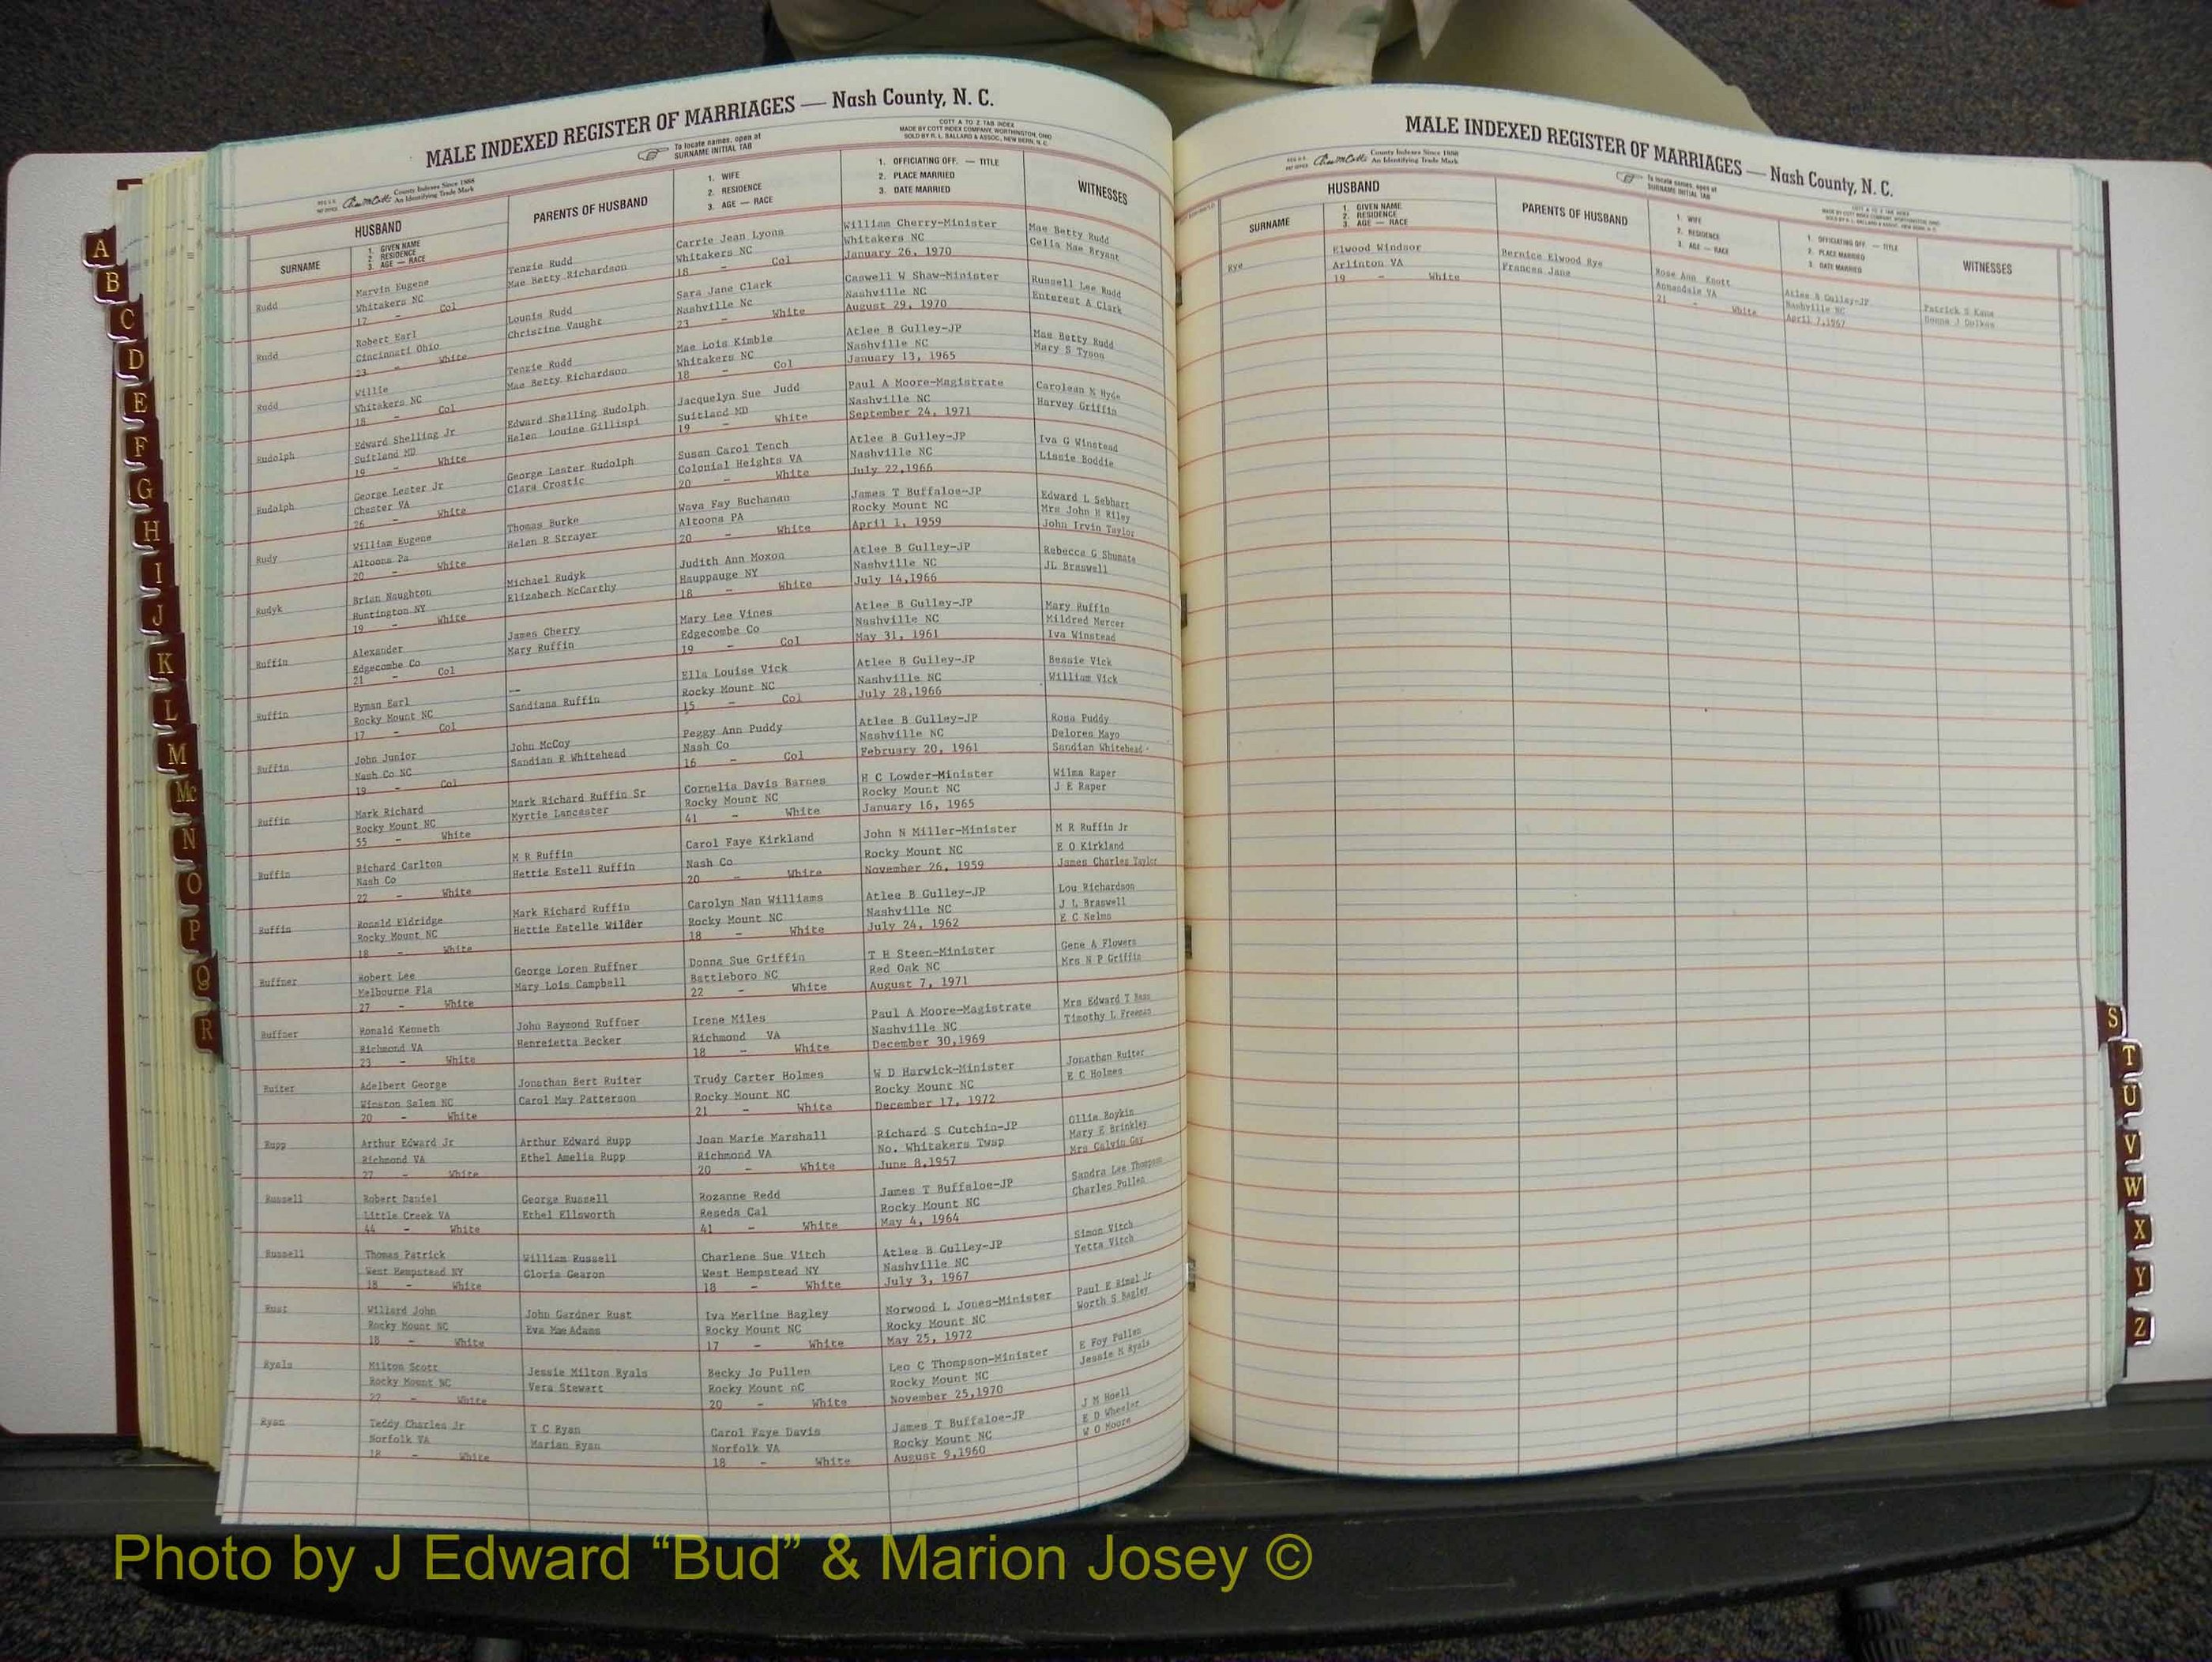 MALE INDEXED REGISTER OF MARRIAGES — Nash County, N. C.
County Indexes Since 1888
An Identifying Trade Mark
To locate names, open at
SURNAME INITIAL TAB
COTT A TO Z TAB INDEX
MADE BY COTT INDEX COMPANY, WORTHINGTON, OHIO
SOLD BY R. L. BALLARD & ASSOC., NEW BERN, N. C.
HUSBAND
SURNAME
1. GIVEN NAME
2. RESIDENCE
3. AGE — RACE
PARENTS OF HUSBAND
1. WIFE
2. RESIDENCE
3. AGE — RACE
1. OFFICIATING OFF. — TITLE
2. PLACE MARRIED
3. DATE MARRIED
WITNESSES
Rudd Marvin Eugene Tenzie Rudd Carrie Jean Lyons William Cherry-Minister Mae Betty Rudd
Whitakers NC Mae Betty Richardson Whitakers NC Whitakers NC Celia Mae Bryant
17 - Col 18 - Col January 26, 1970
Rudd Robert Earl Lounis Rudd Sara Jane Clark Caswell W Shaw-Minister Russell Lee Rudd
Cincinnati Ohio Christine Vaught Nashville Nc Nashville NC Enterest A Clark
23 - White 23 - White August 29, 1970
Rudd Willie Tenzie Rudd Mae Lois Kimble Atlee B Gulley-JP Mae Betty Rudd
Whitakers NC Mae Betty Richardson Whitakers NC Nashville NC Mary S Tyson
18 - Col 18 - Col January 13, 1965
Rudolph Edward Shelling Jr Edward Shelling Rudolph Jacquelyn Sue Judd Paul A Moore-Magistrate Carolean N Hyde
Suitland MD Helen Louise Gillispi Suitland MD Nashville NC Harvey Griffin
19 - White 19 - White September 24, 1971
Rudolph George Lester Jr George Lester Rudolph Susan Carol Tench Atlee B Gulley-JP Iva G Winstead
Chester VA Clara Crostic Colonial Heights VA Nashville NC Lissie Boddie
26 - White 20 - White July 22,1966
Rudy William Eugene Thomas Burke Wava Fay Buchanan James T Buffaloe-JP Edward L Sebhart
Altoona Pa Helen R Strayer Altoona PA Rocky Mount NC Mrs John H Riley
20 - White 20 - White April 1, 1959 John Irvin Taylor
Rudyk Brian Naughton Michael Rudyk Judith Ann Moxon Atlee B Gulley-JP Rebecca G Shumate
Huntington NY Elizabeth McCarthy Hauppauge NY Nashville NC JL Braswell
19 - White 18 - White July 14,1966
Ruffin Alexander James Cherry Mary Lee Vines Atlee B Gulley-JP Mary Ruffin
Edgecombe Co Mary Ruffin Edgecombe Co Nashville NC Mildred Mercer
21 - Col 19 - Col May 31, 1961 Iva Winstead
Ruffin Hyman Earl -- Ella Louise Vick Atlee B Gulley-JP Bessie Vick
Rocky Mount NC Sandiana Ruffin Rocky Mount NC Nashville NC William Vick
17 - Col 15 - Col July 28,1966
Ruffin John Junior John McCoy Peggy Ann Puddy Atlee B Gulley-JP Rosa Puddy
Nash Co NC Sandian R Whitehead Nash Co Nashville NC Delores Mayo
19 - Col 16 - Col February 20, 1961 Sandian Whitehead
Ruffin Mark Richard Mark Richard Ruffin Sr Cornelia Davis Barnes H C Lowder-Minister Wilma Raper
Rocky Mount NC Myrtie Lancaster Rocky Mount NC Rocky Mount NC J E Raper
55 - White 41 - White January 16, 1965
Ruffin Richard Carlton M R Ruffin Carol Faye Kirkland John N Miller-Minister M R Ruffin Jr
Nash Co Hettie Estell Ruffin Nash Co Rocky Mount NC E O Kirkland
22 - White 20 - White November 26, 1959 James Charles Taylor
Ruffin Ronald Eldridge Mark Richard Ruffin Carolyn Nan Williams Atlee B Gulley-JP Lou Richardson
Rocky Mount NC Hettie Estelle Wilder Rocky Mount NC Nashville NC J L Braswell
18 - White 18 - White July 24, 1962 E C Nelms
Ruffner Robert Lee George Loren Ruffner Donna Sue Griffin T H Steen-Minister Gene A Flowers
Melbourne Fla Mary Lois Campbell Battleboro NC Red Oak NC Mrs N P Griffin
27 - White 22 - White August 7, 1971
Ruffner Ronald Kenneth John Raymond Ruffner Irene Miles Paul A Moore-Magistrate Mrs Edward T
Richmond VA Henreietta Becker Richmond VA Nashville NC Timothy L Freeman
23 - White 18 - White December 30,1969
Ruiter Adelbert George Jonathan Bert Ruiter Trudy Carter Holmes W D Harwick-Minister Jonathan Ruiter
Winston Salem NC Carol May Patterson Rocky Mount NC Rocky Mount NC E C Holmes
20 - White 21 - White December 17, 1972
Rupp Arthur Edward Jr Arthur Edward Rupp Joan Marie Marshall Richard S Cutchin-JP Ollie Boykin
Richmond VA Ethel Amelia Rupp Richmond VA No. Whitakers Twsp Mary E Brinkley
27 - White 20 - White June 8,1957 Mrs Calvin Gay
Russell Robert Daniel George Russell Rozanne Redd James T Buffaloe-JP Sandra Lee Thompson
Little Creek VA Ethel Ellsworth Reseda Cal Rocky Mount NC Charles Pullen
44 - White 41 - White May 4, 1964
Russell Thomas Patrick William Russell Charlene Sue Vitch Atlee B Gulley-JP Simon Vitch
West Hempstead NY Gloria Gearon West Hempstead NY Nashville NC Yetta Vitch
18 - White 18 - White July 3, 1967
Rust Willard John John Gardner Rust Iva Merline Bagley Norwood L Jones-Minister Paul E Rimel Jr
Rocky Mount NC Eva Mae Adams Rocky Mount NC Rocky Mount NC Worth S Bagley
18 - White 17 - White May 25, 1972
Ryals Milton Scott Jessie Milton Ryals Becky Jo Pullen Leo C Thompson-Minister E Foy Pullen
Rocky Mount NC Vera Stewart Rocky Mount nC Rocky Mount NC Jessie M Ryals
22 - White 20 - White November 25,1970
Ryan Teddy Charles Jr T C Ryan Carol Faye Davis James T Buffaloe-JP J M Hoell
Norfolk VA Marian Ryan Norfolk VA Rocky Mount NC E D Wheeler
18 - White 18 - White August 9,1960 W O Moore
MALE INDEXED REGISTER OF MARRIAGES — Nash County, N. C.
County Indexes Since 1888
An Identifying Trade Mark
To locate names, open at
SURNAME INITIAL TAB
HUSBAND
SURNAME
1. GIVEN NAME
2. RESIDENCE
3. AGE — RACE
PARENTS OF HUSBAND
1. WIFE
2. RESIDENCE
3. AGE — RACE
1. OFFICIATING OFF. — TITLE
2. PLACE MARRIED
3. DATE MARRIED
WITNESSES
Rye Elwood Windsor Bernice Elwood Rye Rose Ann Knott Atlee B Gulley-JP Patrick S Kane
Arlinton VA Frances Jane Annandale VA Nashville NC Donna J Dulkes
19 - White 21 - White April 7,1967
A
B
C
D
E
F
G
H
I
J
K
L
M
Mc
N
O
P
Q
R
S
T
U
V
W
X
Y
Z
Photo by J Edward “Bud” & Marion Josey ©